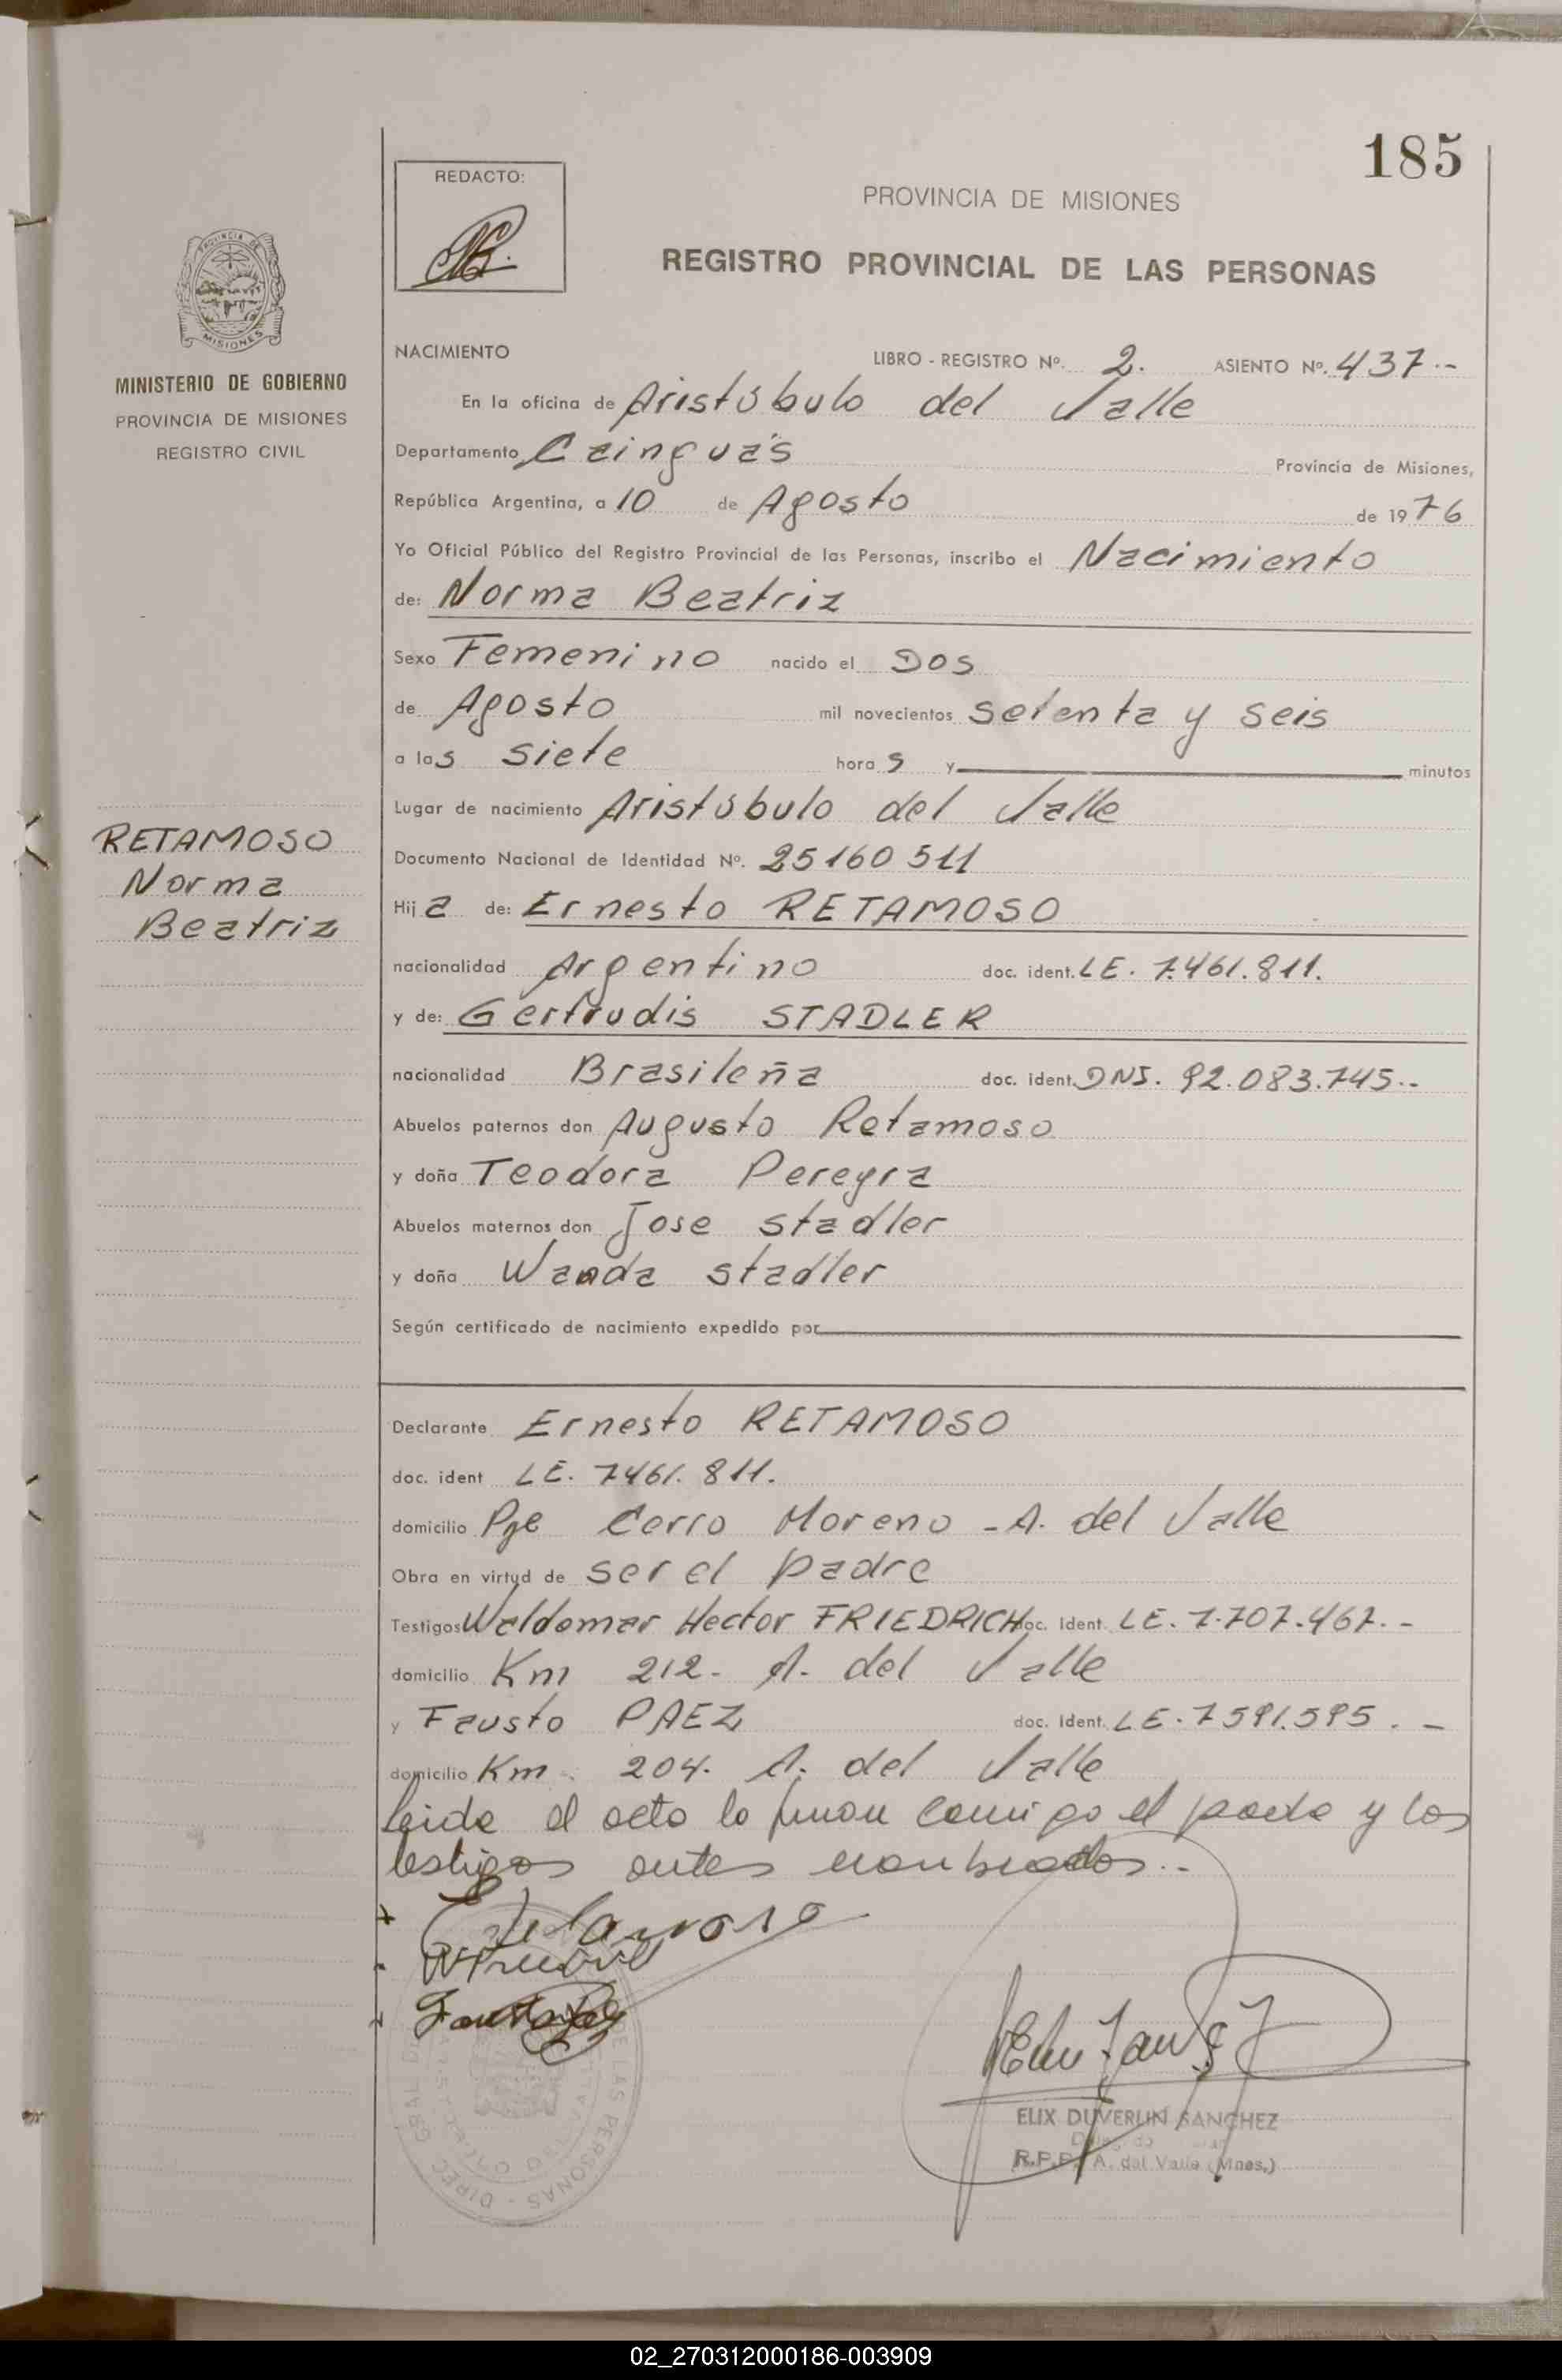 185
REDACTO:
PROVINCIA DE MISIONES
REGISTRO PROVINCIAL DE LAS PERSONAS
MISIONES
MINISTERIO DE GOBIERNO
PROVINCIA DE MISIONES
REGISTRO CIVIL
RETAMOSO
Norma
Beatriz
NACIMIENTO LIBRO - REGISTRO Nº. 2. ASIENTO Nº. 437.-
En la oficina de Aristóbulo del Valle
Departamento Cainguás Provincia de Misiones,
República Argentina, a 10 de Agosto de 1976
Yo Oficial Público del Registro Provincial de las Personas, inscribo el Nacimiento
de: Norma Beatriz
Sexo Femenino nacido el Dos
de Agosto mil novecientos setenta y seis
a las siete horas y minutos
Lugar de nacimiento Aristóbulo del Valle
Documento Nacional de Identidad Nº. 25160511
Hija de: Ernesto RETAMOSO
nacionalidad Argentino doc. ident. LE. 7.461.811.
y de: Gertrudis STADLER
nacionalidad Brasileña doc. ident. DNI. 92.083.745.-
Abuelos paternos don Augusto Retamoso
y doña Teodora Pereyra
Abuelos maternos don Jose Stadler
y doña Wanda Stadler
Según certificado de nacimiento expedido por
Declarante Ernesto RETAMOSO
doc. ident LE. 7461.811.
domicilio Pje Cerro Moreno - A. del Valle
Obra en virtud de ser el padre
Testigos Waldomar Hector FRIEDRICH doc. Ident. LE. 7.707.467.-
domicilio Km 212- A. del Valle
y Fausto PAEZ doc. Ident. LE. 7591.595.-
domicilio Km. 204. A. del Valle
leida el acta la firman conmigo el padre y los
testigos antes nombrados.-
ELIX DUVERLIN SANCHEZ
R.P.P. A. del Valle (Mnes.)
02_270312000186-003909